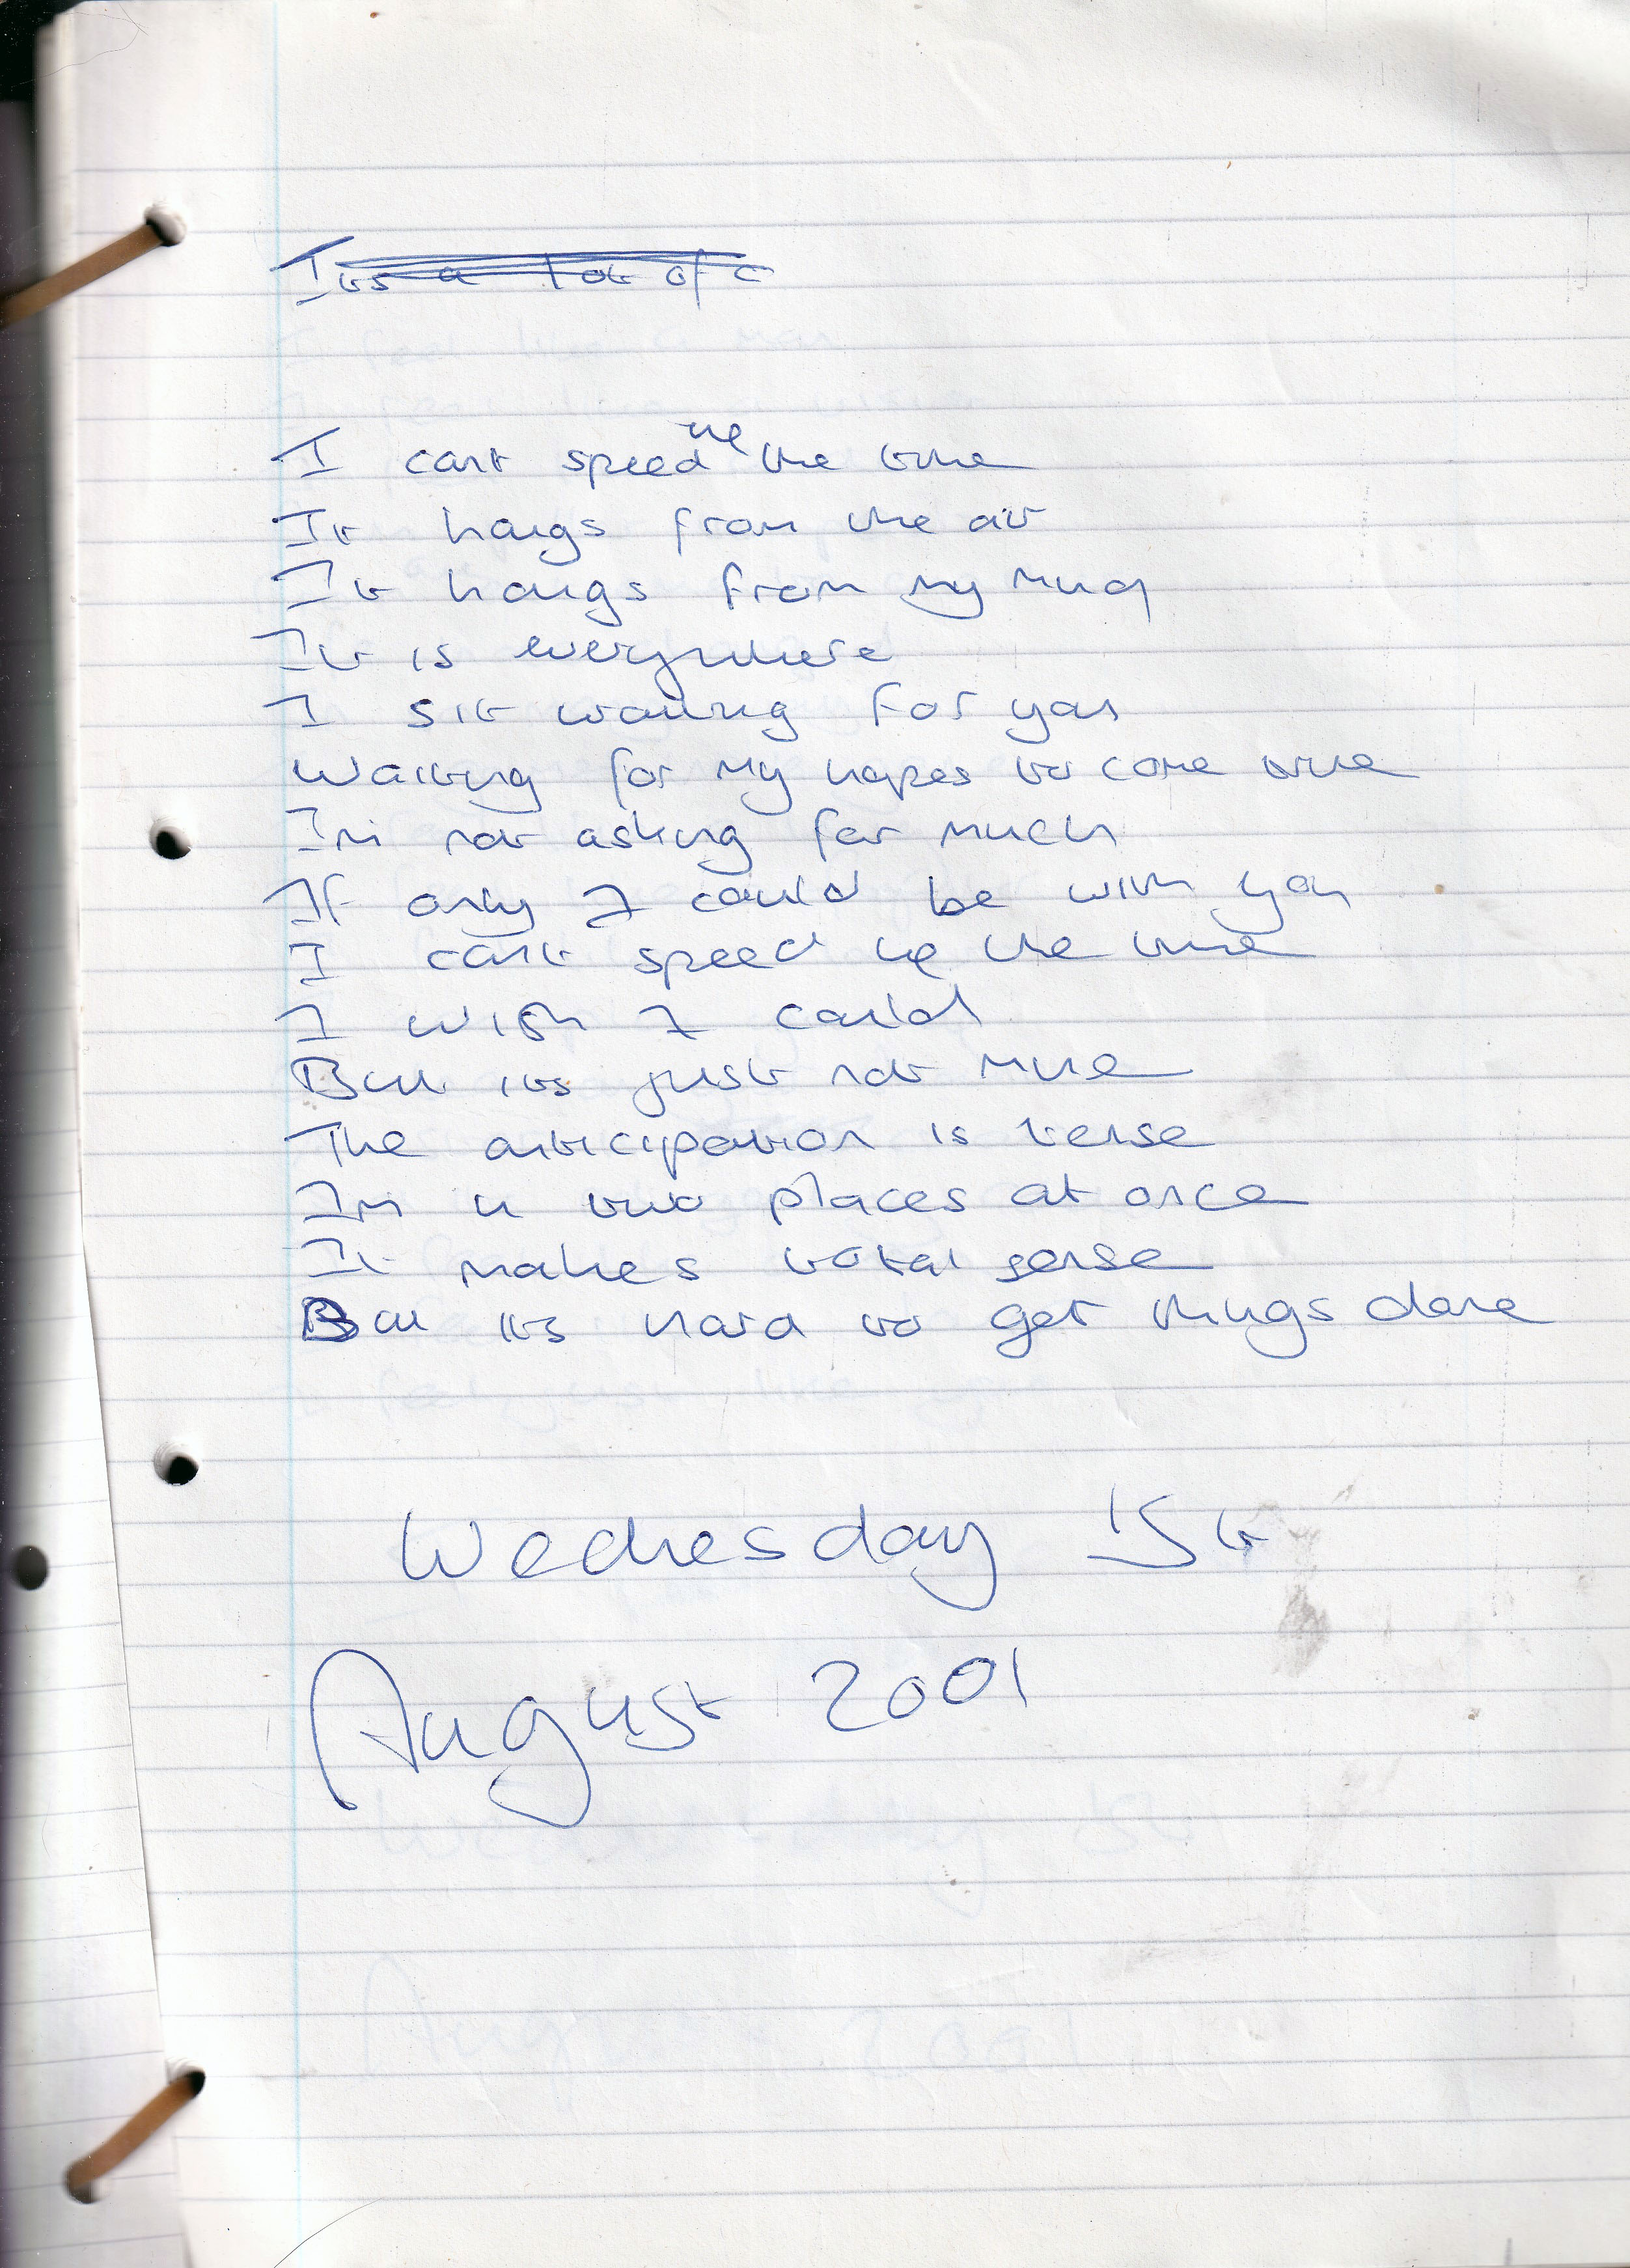 Its a lot of c
I cant speed up the time
It hangs from the air
It hangs from my mind
It is everywhere
I sit waiting for you
Waiting for my hopes to come true
Im not asking for much
If only I could be with you
I cant speed up the time
I wish I could
But its just not mine
The anticipation is tense
Im in two places at once
It makes total sense
But its hard to get things done
Wednesday 15t
August 2001